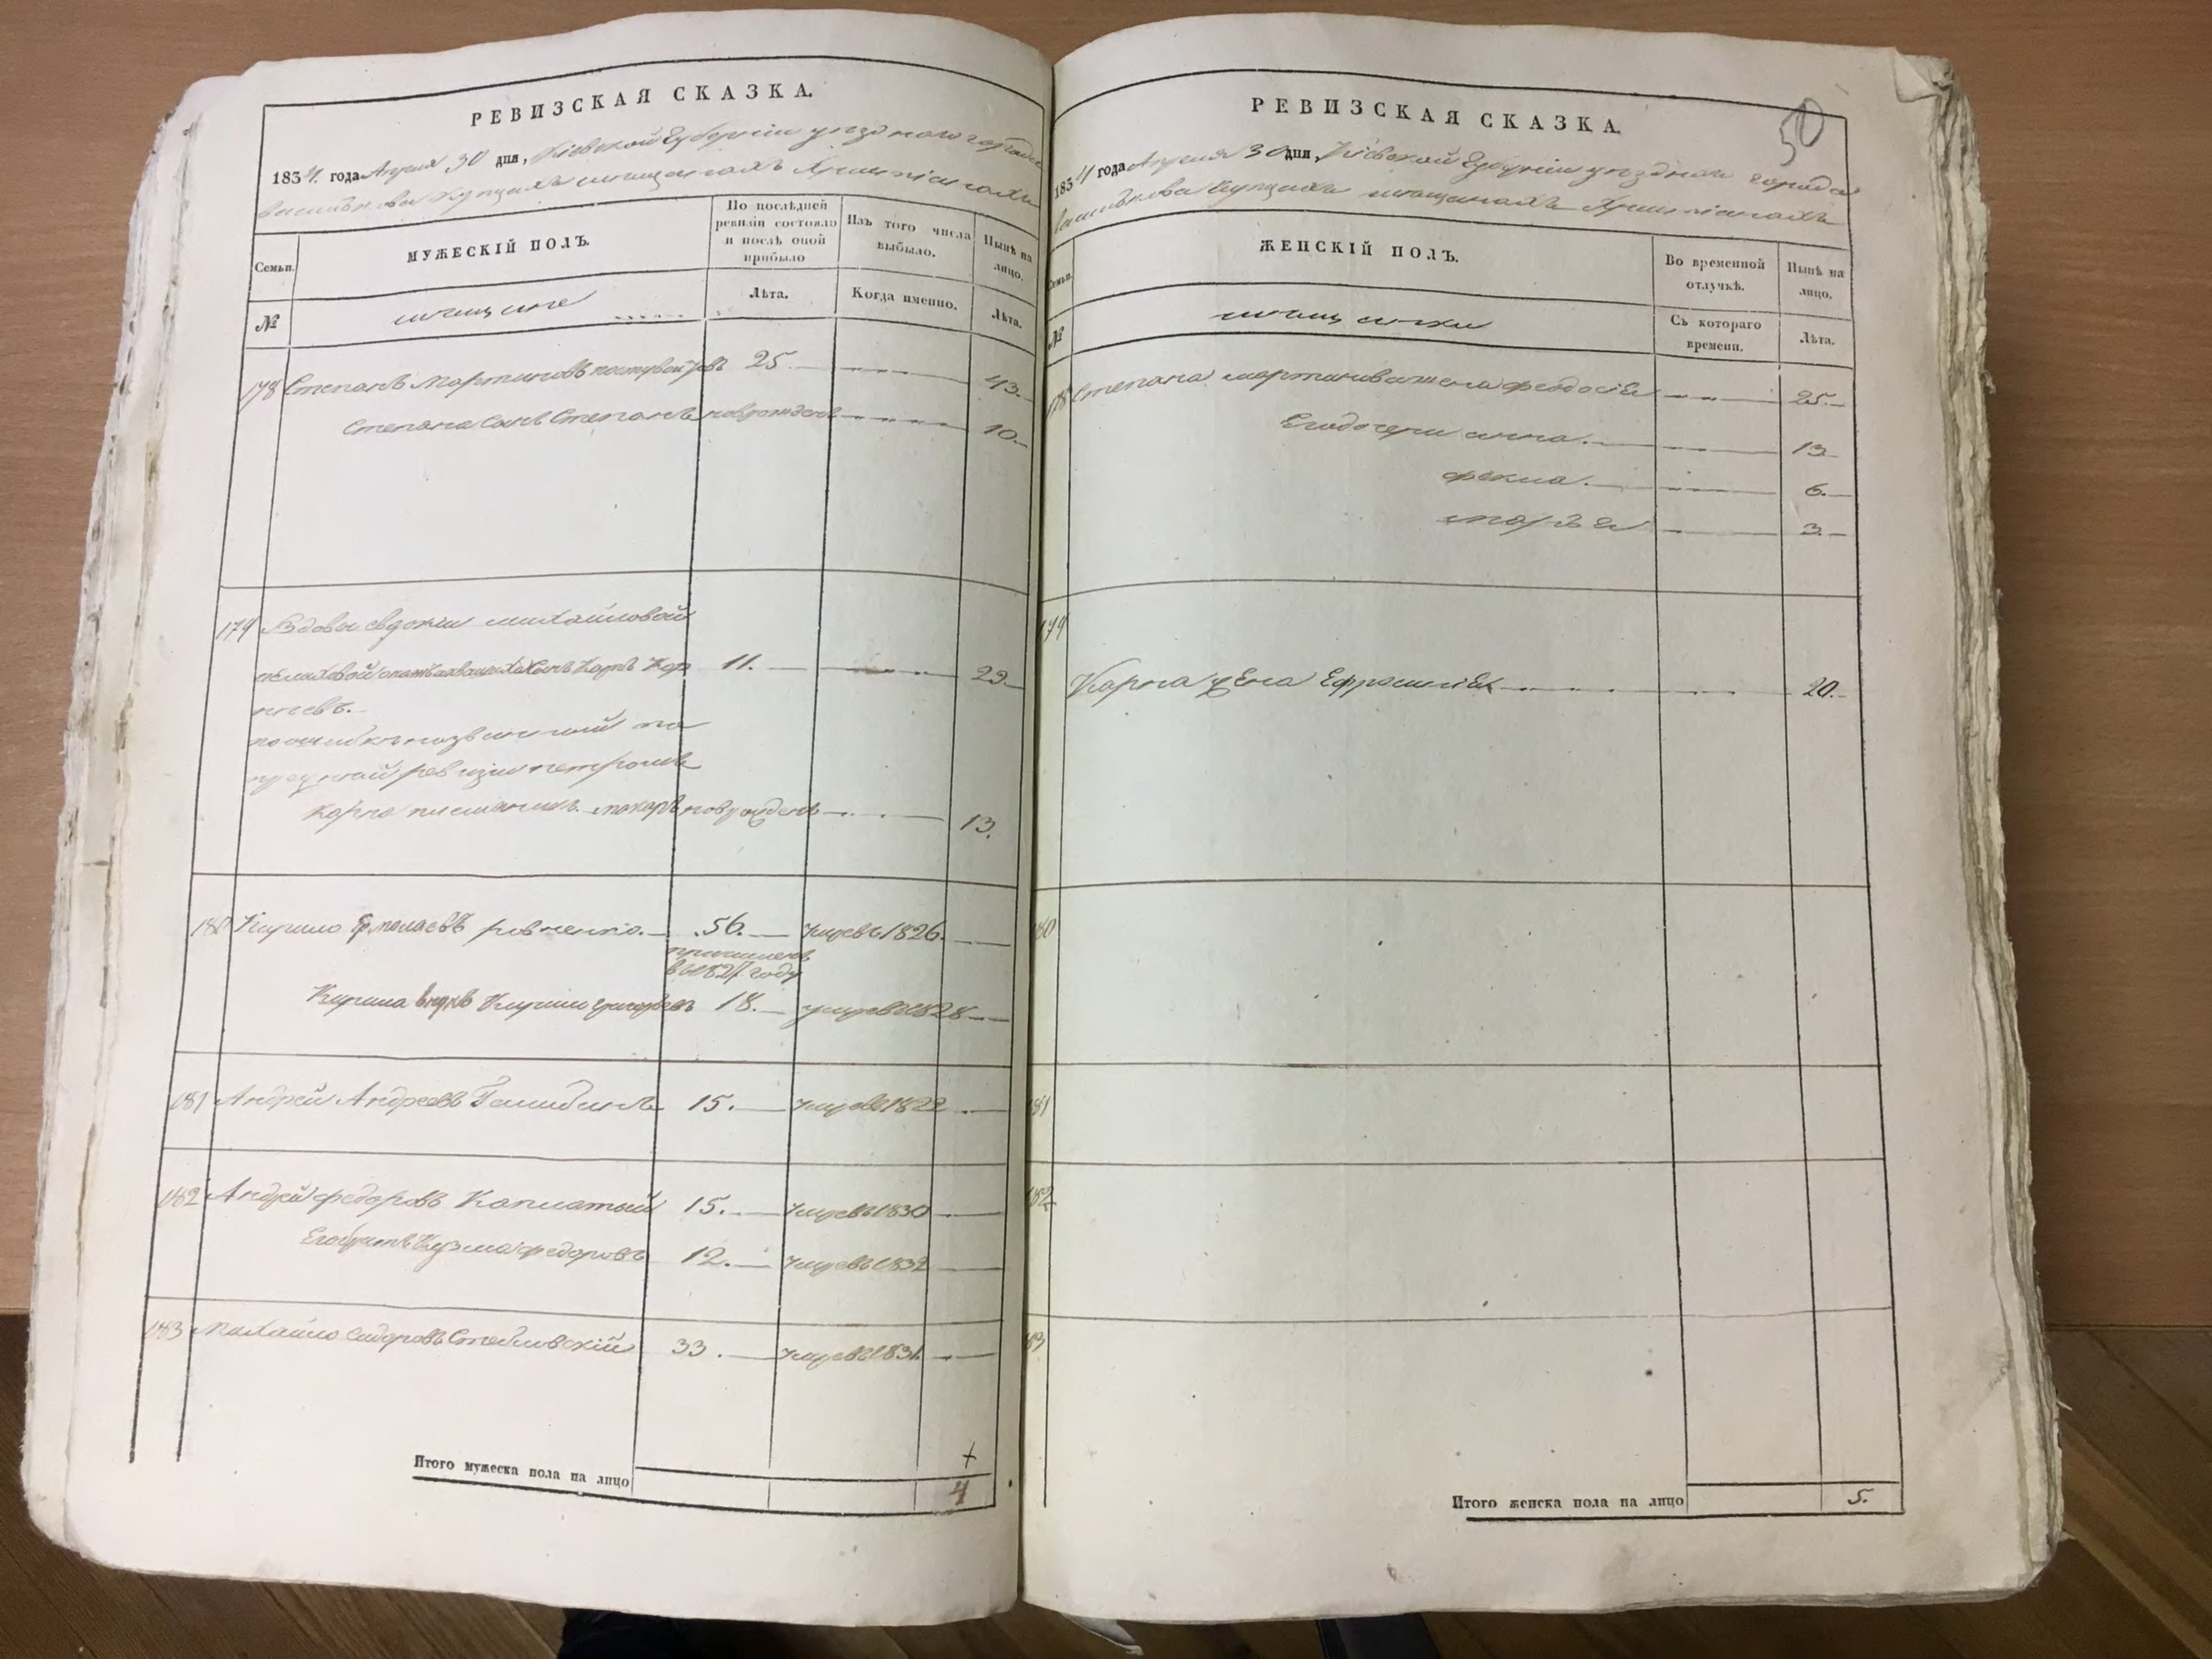 РЕВИЗСКАЯ СКАЗКА.
1834. года Апреля 30 дня, Кіевской Губерніи уезднаго города
Василькова Купцахъ мещанахъ Христіанахъ
Семьи.
МУЖЕСКІЙ ПОЛЪ.
По послѣдней ревизіи состояло и послѣ оной прибыло
Изъ того числа выбыло.
Нынѣ на лицо.
№
мещане
Лѣта.
Когда именно.
Лѣта.
178 Степанъ Мартиновъ 25. 43.
Степана сынъ Степанъ новрожденъ 10.
179 Вдовы евдокіи михайловой
сынъ Карпъ Кор 11. 29
нѣевъ.
по ошибкѣ названный по
прежней ревизіи петромъ
Карпа макаръ новрожденъ 13.
180 Кирило Ермолаевъ ровненко. 56. умре въ 1826.
причисленъ
в 1821 году
Кирила внукъ Кирило григорьевъ 18. умре въ 1828
181 Андрей Андреевъ 15. умре въ 1822
182 Андрей федоровъ Каплатый 15. умре въ 1830
Его братъ Кузма федоровъ 12. умре въ 1832
183 Михайло Сидоровъ Стеблевскій 33. умре въ 1831.
Итого мужеска пола на лицо 4
РЕВИЗСКАЯ СКАЗКА.
50
1834 года Апреля 30 дня, Кіевской Губерніи уезднаго города
Василькова Купцахъ мещанахъ Христіанахъ
Семьи.
ЖЕНСКІЙ ПОЛЪ.
Во временной отлучкѣ.
Нынѣ на лицо.
№
мещанки
Съ котораго времени.
Лѣта.
178 Степана мартинова жена феодосія 25.
Его дочери анна. 13
фекла. 6.
марья 3.
179
Карпа жена Ефросинія 20.
180
181
182
183
Итого женска пола на лицо 5.